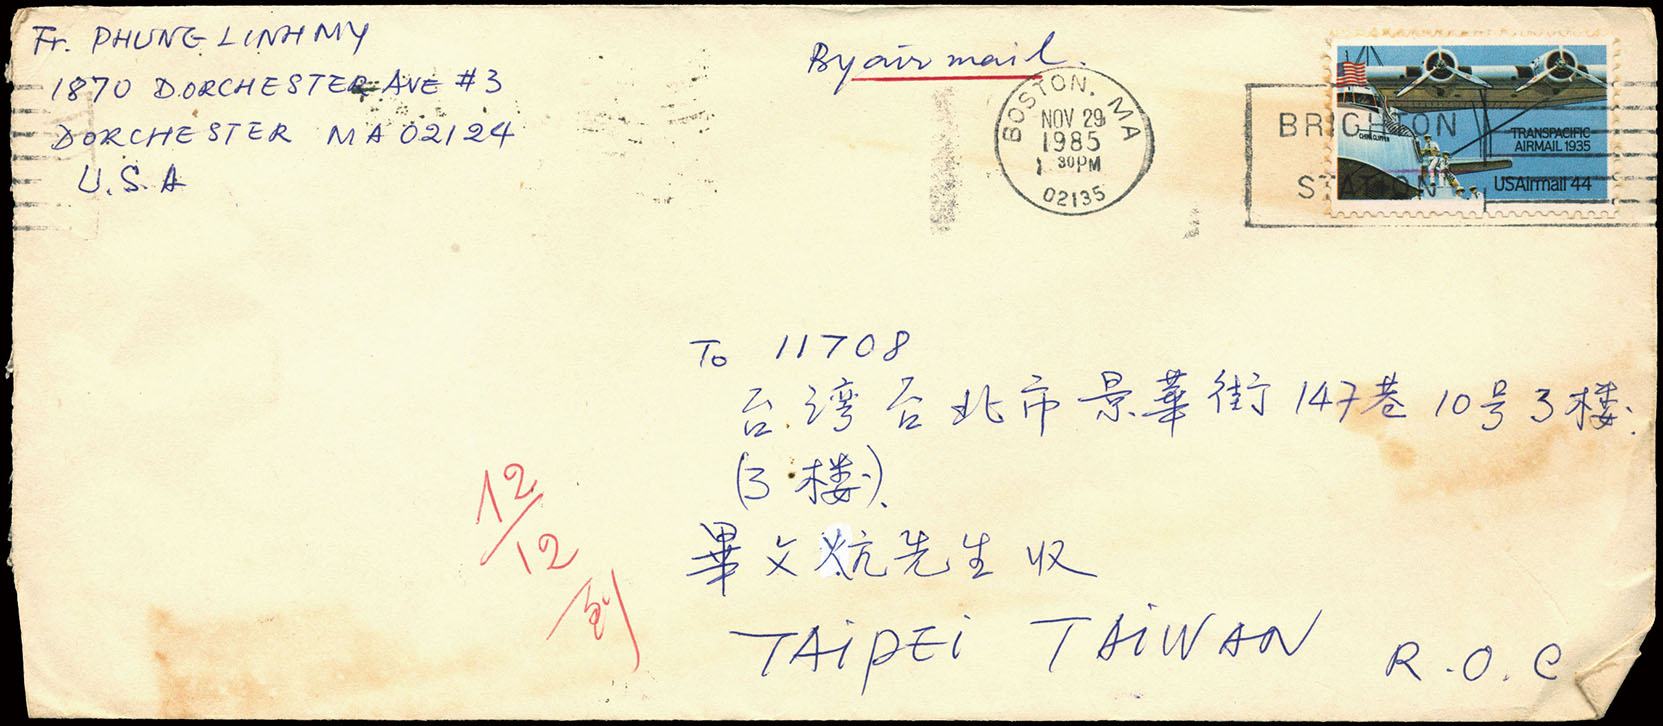 Fr. PHUNG LINH MY
1870 DORCHESTER AVE #3
DORCHESTER MA 02124
U.S.A
By air mail.
BOSTON, MA
NOV 29
1985
1 30PM
02135
BRIGHTON
STATION
CHINA CLIPPER
TRANSPACIFIC
AIRMAIL 1935
USAirmail 44
To 11708
台湾台北市景華街147巷10号3楼.
(3楼).
畢文炕先生收
TAiPEi TAiWAN R.O.C
12/12到